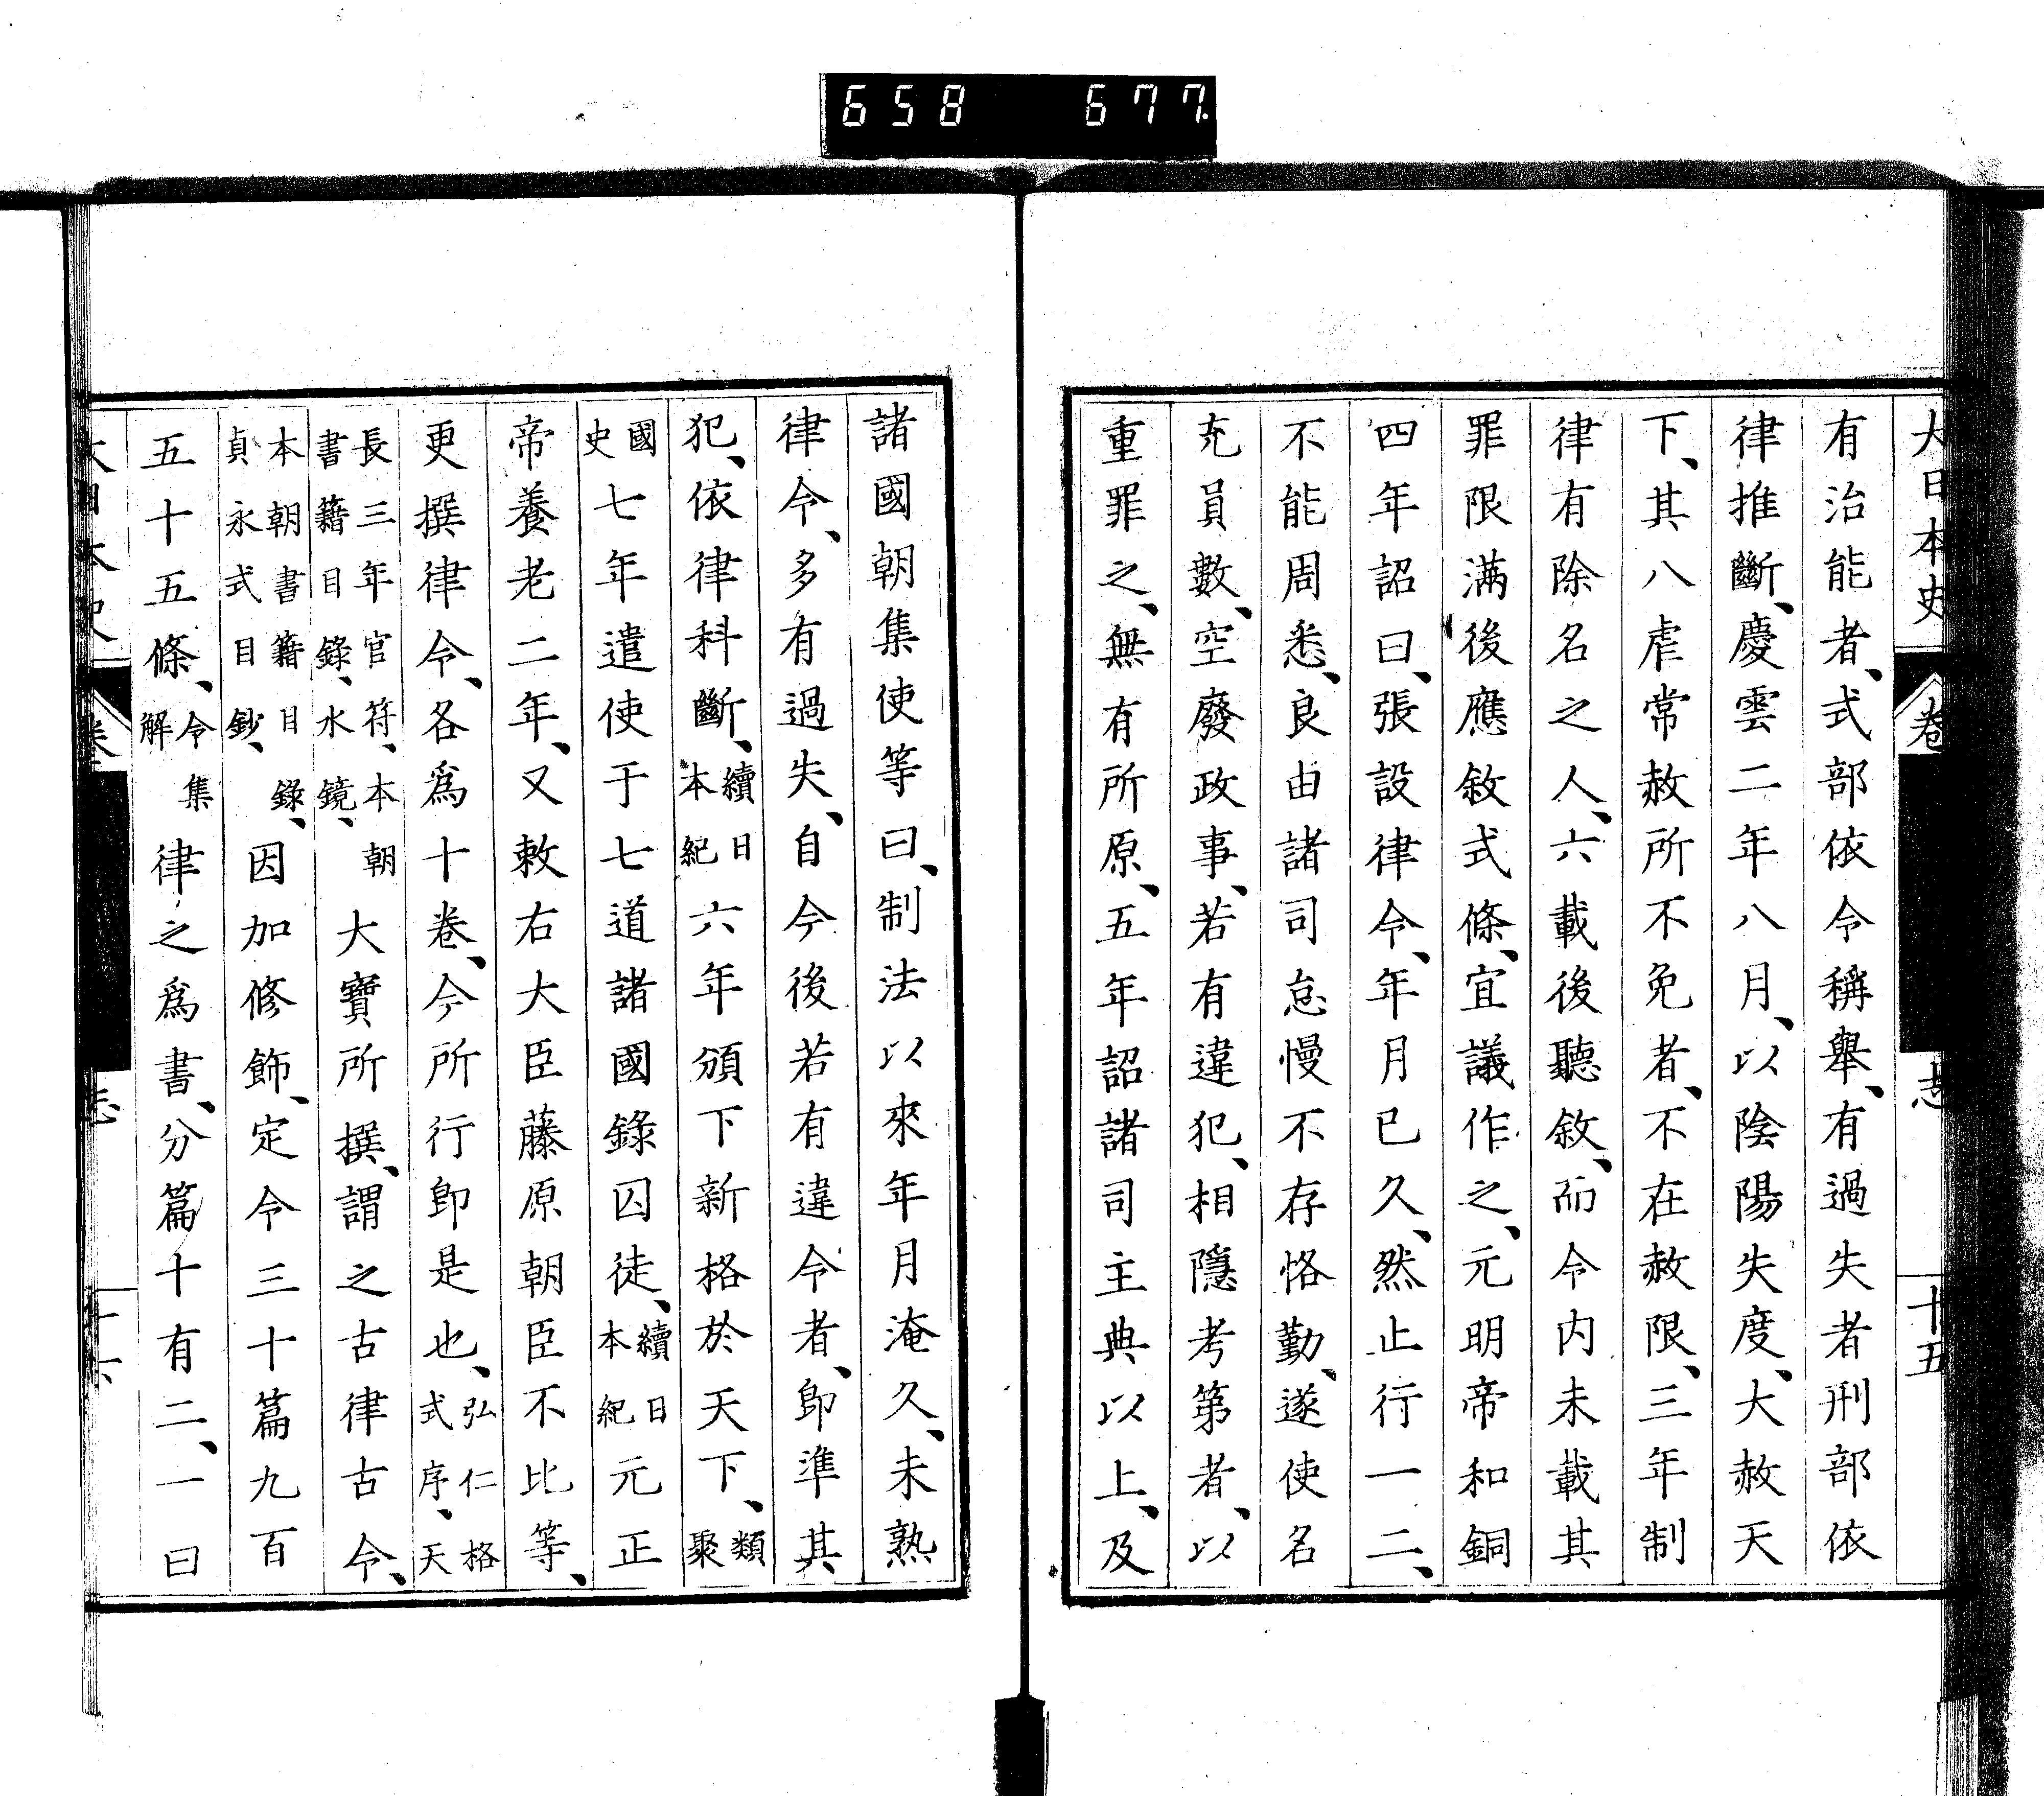 658 677.
大日本史 卷 志 十五
有治能者、式部依令稱舉、有過失者刑部依
律推斷、慶雲二年八月、以陰陽失度、大赦天
下、其八虐常赦所不免者、不在赦限、三年制
律有除名之人、六載後聽敘、而令内未載其
罪限滿後應敘式條、宜議作之、元明帝和銅
四年詔曰、張設律令、年月已久、然止行一二、
不能周悉、良由諸司怠慢不存恪勤、遂使名
充員數、空廢政事、若有違犯、相隱考第者、以
重罪之、無有所原、五年詔諸司主典以上、及
諸國朝集使等曰、制法以來年月淹久、未熟
律令、多有過失、自今後若有違令者、即準其
犯、依律科斷、續日本紀六年頒下新格於天下、類聚
國史七年遣使于七道諸國錄囚徒、續日本紀元正
帝養老二年、又敕右大臣藤原朝臣不比等、
更撰律令、各爲十卷、今所行即是也、弘仁格式序、天
長三年官符、本朝書籍目錄、水鏡、大寶所撰、謂之古律古令、
本朝書籍目錄、貞永式目鈔、因加修飾、定令三十篇九百
五十五條、令集解律之爲書、分篇十有二、一曰
大日本史 卷 志 十六